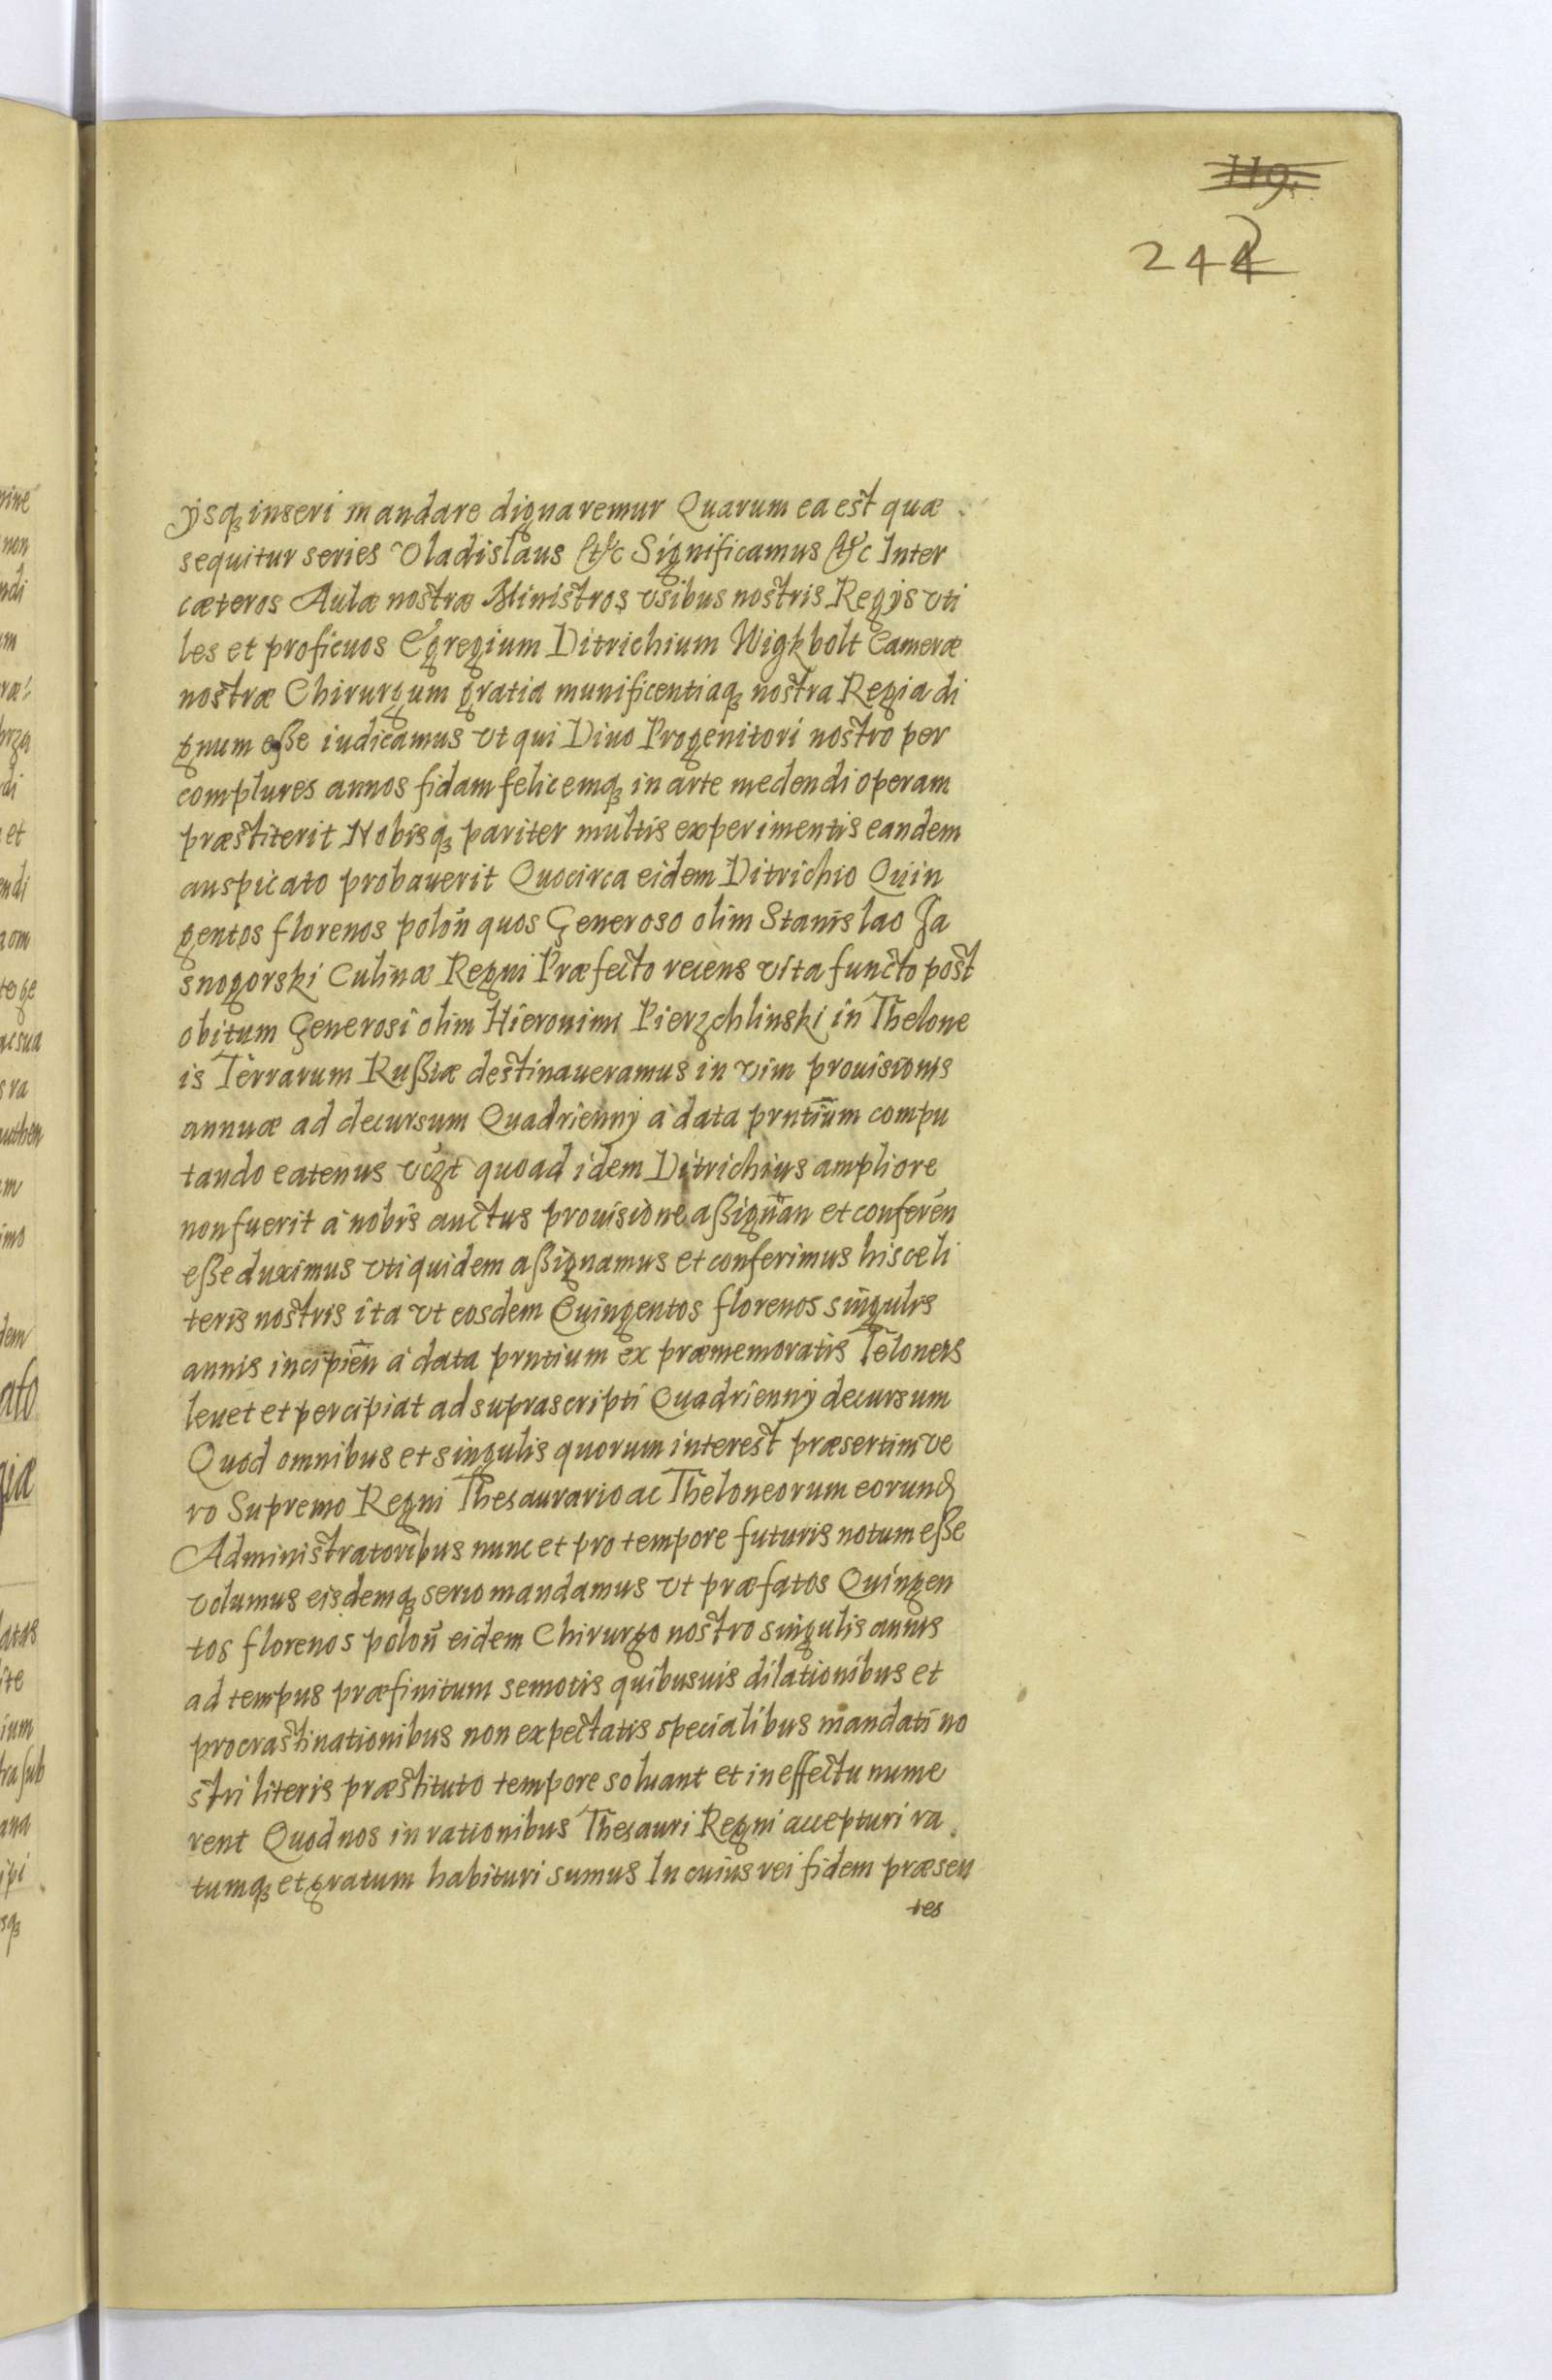 119.
242
ijsq₃ inseri mandare dignaremur Quarum ea est quæ
sequitur series Vladislaus &c Significamus &c Inter
cæteros Aulæ nostræ Ministros vsibus nostris Regijs vti
les et proficuos Egregium Ditrichium Wigkbolt Cameræ
nostræ Chirurgum gratia munificentiaq₃ nostra Regia di
gnum eße iudicamus vt qui Diuo Progenitori nostro per
complures annos fidam felicemq₃ in arte medendi operam
præstiterit Nobisq₃ pariter multis experimentis eandem
auspicato probauerit Quocirca eidem Ditrichio Quin
gentos florenos polon̄ quos Generoso olim Stanislao Ja
snogorski Culinæ Regni Præfecto recens vita functo post
obitum Generosi olim Hieronimi Pierzchlinski in Thelone
is Terrarum Rußiæ destinaueramus in vim prouisionis
annuæ ad decursum Quadriennij à data prntium compu
tando eatenus vczt quoad idem Ditrichius ampliore
non fuerit à nobis auctus prouisione aßignan̄ et conferen̄
eße duximus vti quidem aßignamus et conferimus hisce li
teris nostris ita vt eosdem Quingentos florenos singulis
annis incipien̄ à data prntium ex præmemoratis Teloneis
leuet et percipiat ad suprascripti Quadriennij decursum
Quod omnibus et singulis quorum interest præsertim ve
ro Supremo Regni Thesaurario ac Theloneorum eorund
Administratoribus nunc et pro tempore futuris notum eße
volumus eisdemq₃ serio mandamus vt præfatos Quingen
tos florenos polon̄ eidem Chirurgo nostro singulis annis
ad tempus præfinitum semotis quibusuis dilationibus et
procrastinationibus non expectatis specialibus mandati no
stri literis præstituto tempore soluant et in effectu nume
rent Quod nos in rationibus Thesauri Regni accepturi ra
tumq₃ et gratum habituri sumus In cuius rei fidem præsen
tes